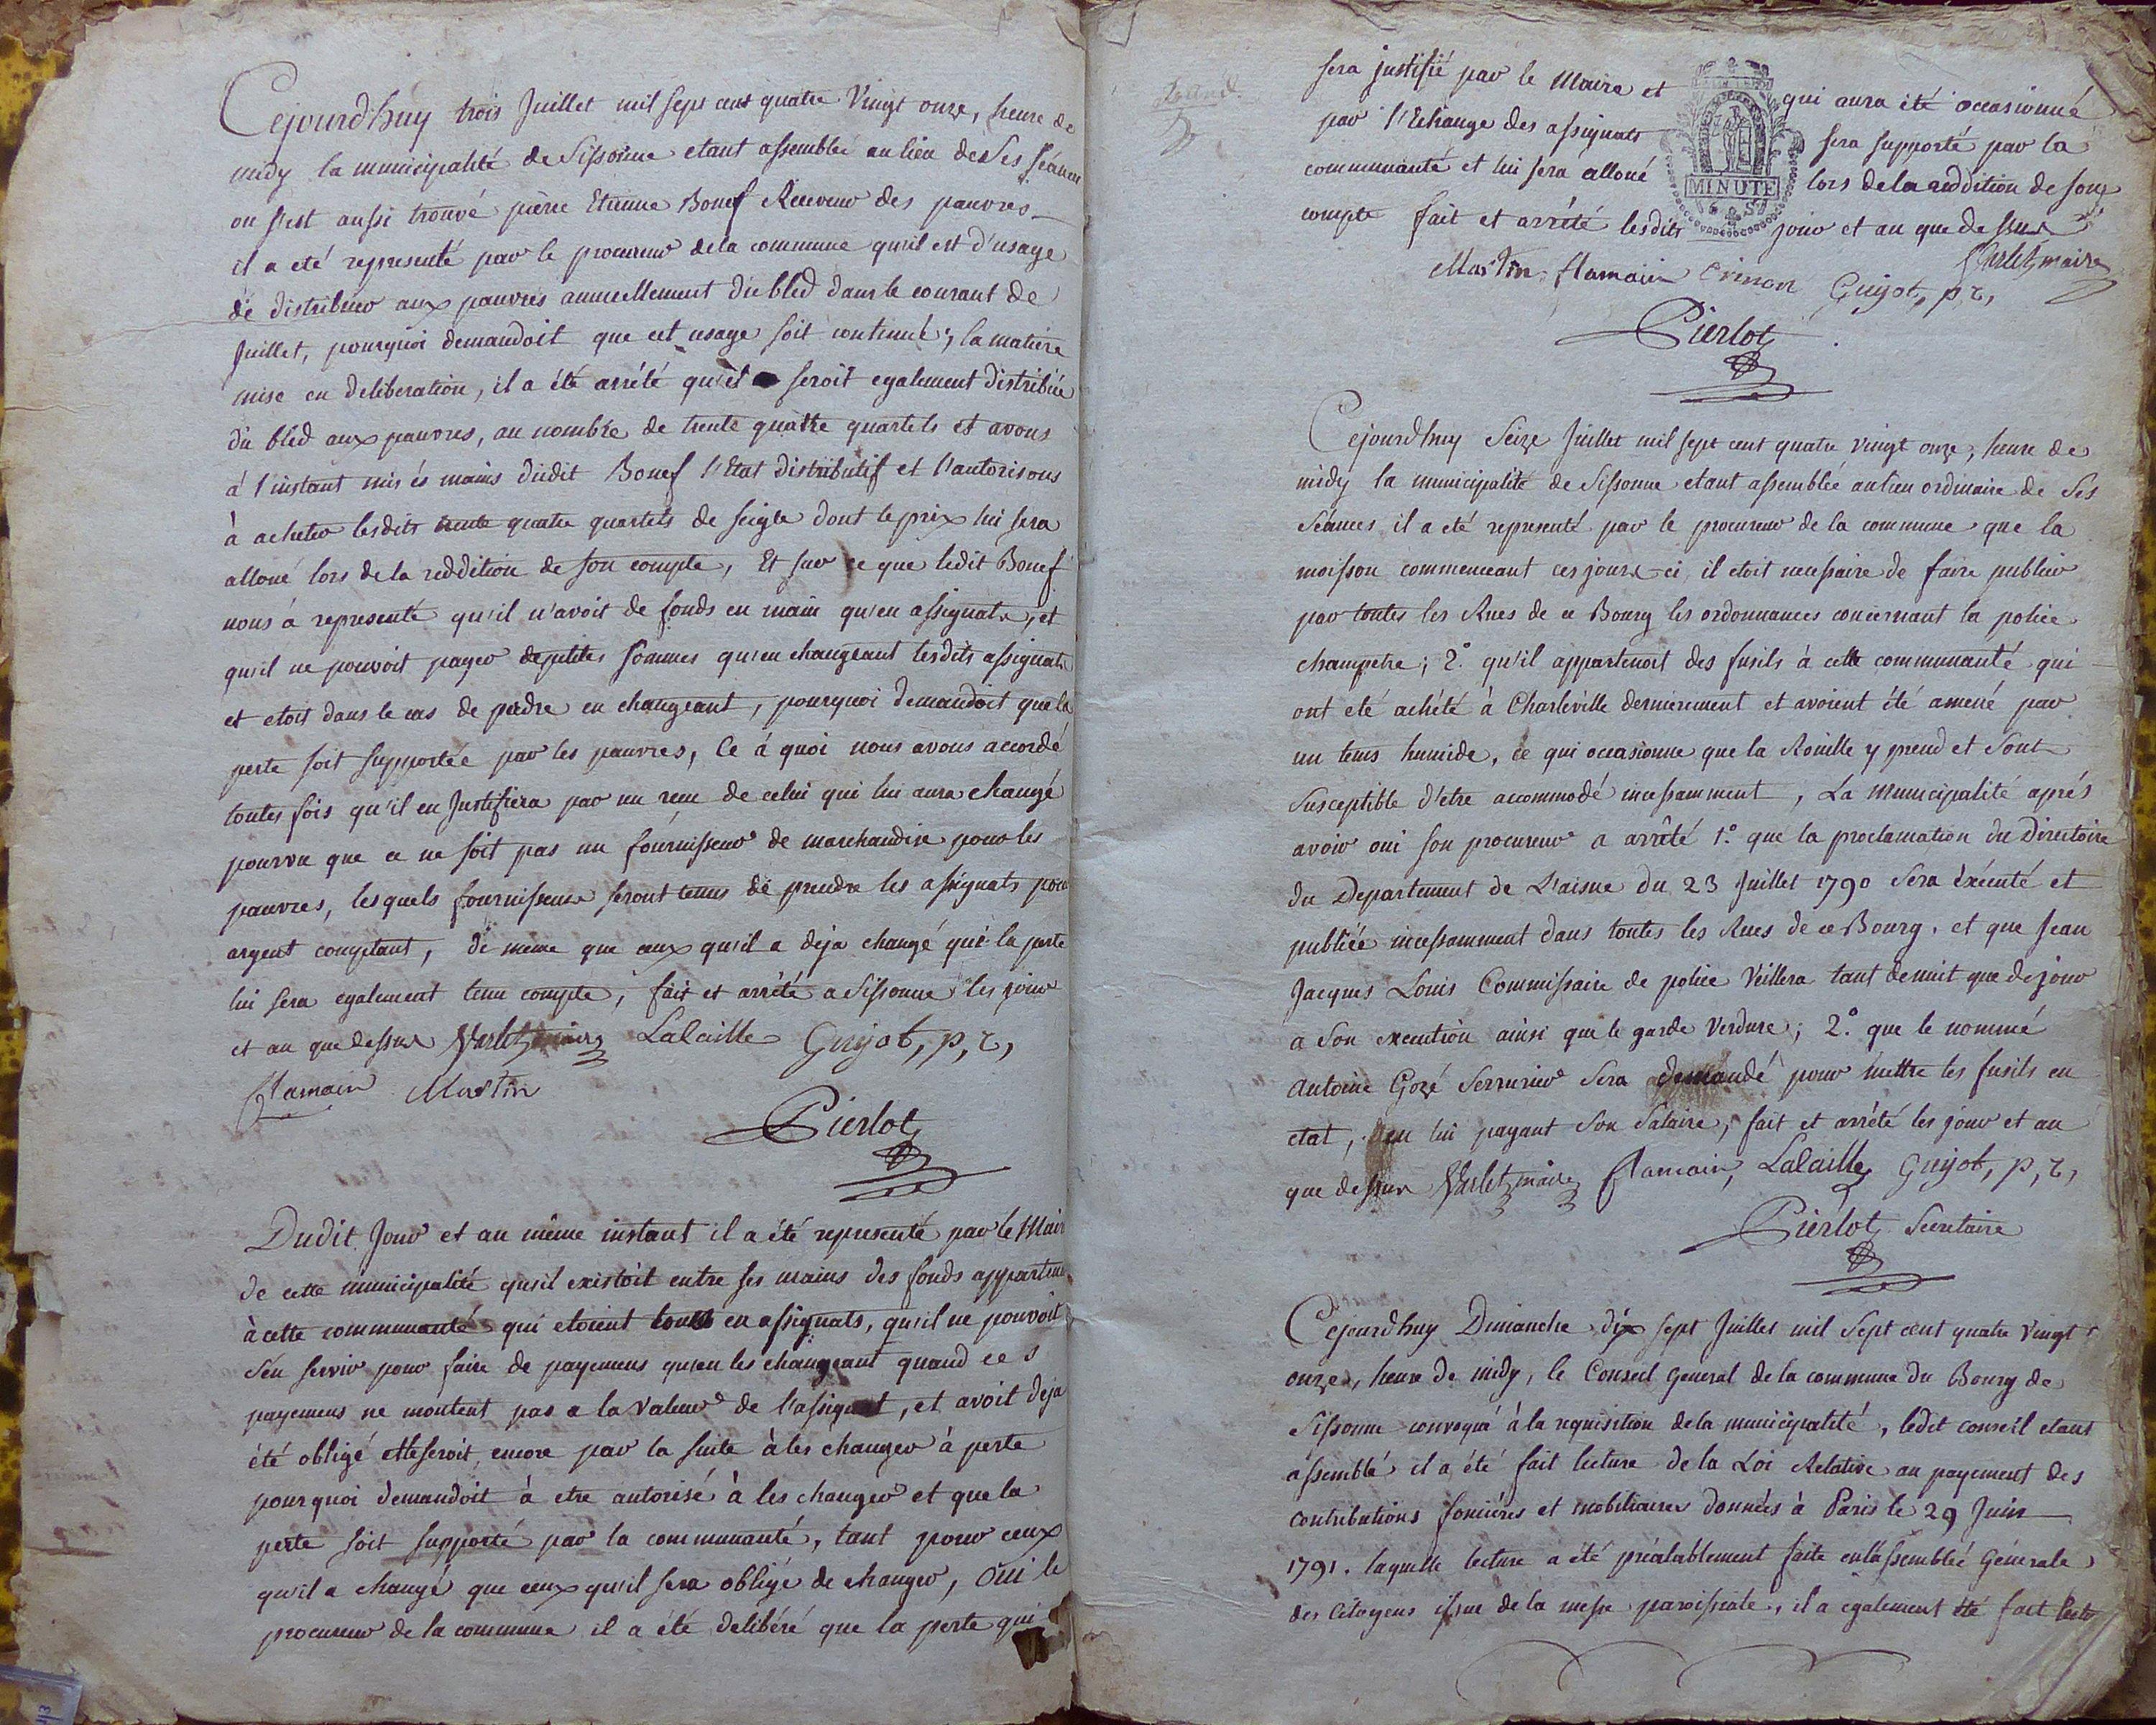 Cejourd'huy trois Juillet mil sept cent quatre Vingt onze, heure de
midy la municipalité de Sissonne etant assemblée au lieu de Ses seances
ou s'est aussi trouvé pierre Etienne Bonef Receveur des pauvres
il a eté representé par le procureur de la commune qu'il est d'usage
de distribuer aux pauvres annuellement du bled dans le courant de
Juillet, pourquoi demandoit que cet usage soit continué; la matiere
mise en deliberation, il a été arrété qu'il seroit egalement distribuée
du bled aux pauvres, au nombre de trente quatre quartels et avons
á l'instant mis és mains dudit Bonef l'Etat distributif et l'autorisons
à acheter lesdits trente quatre quartels de seigle dont le prix lui sera
alloué lors de la reddition de son compte, Et sur ce que ledit Bonef
nous á representé qu'il n'avoit de fonds en main qu'en assignats, et
qu'il ne pouvoit payer de petites sommes qu'en changeant lesdits assignats
et etoit dans le cas de perdre en changeant, pourquoi demandoit que la
perte soit supportée par les pauvres, Ce á quoi nous avons accordé
toutes fois qu'il en Justifiera par un recu de celui qui lui aura changé
pourvu que ce ne soit pas un fournisseur de marchandise pour les
pauvres, lesquels fournisseurs seront tenus de prendre les assignats pour
argent comptant, de meme que ceux qu'il a deja changé que la perte
lui sera egalement tenu compte; fait et arrêté a Sissonne les jour
et an que dessus Varlet maire Lalaille Guyot, p, c,
flamain Martin
Pierlot
Dudit Jour et au même instant il a été representé par le Maire
de cette municipalité qu'il existoit entre ses mains des fonds appartenant
à cette communauté qui etoient tous en assignats, qu'il ne pouvoit
s'en servir pour faire de payemens qu'en les changeant quand ces
payemens ne montent pas a la valeur de l'assignat, et avoit deja
été obligé et le seroit encore par la suite à les changer à perte
pourquoi demandoit à etre autorisé à les changer et que la
perte soit supporté par la communauté, tant pour ceux
qu'il a changé que ceux qu'il sera obligé de changer, Oui le
procureur de la commune il a été deliberé que la perte qui
sera justifié par le Maire et qui aura été occasionné
par l'Echange des assignats sera supporté par la
communauté et lui sera alloué lors de la reddition de son
compte fait et arrété lesdits jour et an que dessus
MINUTE
Varlet maire
Martin flamain Crinon Guyot, p, c,
Pierlot
Cejourd'huy Seize Juillet mil sept cent quatre vingt onze, heure de
midy la municipalité de Sissonne etant assemblée au lieu ordinaire de Ses
Séances, il a eté representé par le procureur de la commune que la
moisson commenceant ces jours ci, il etoit necessaire de faire publier
par toutes les Rues de ce Bourg les ordonnances concernant la police
champetre; 2° qu'il appartenoit des fusils à cette communauté qui
ont eté achété à Charleville dernierement et avoient été amené par
un tems humide, ce qui occasionne que la Rouille y prend et Sont
Susceptible d'etre accommodé incessamment, La Municipalité aprés
avoir oui son procureur a arrêté 1° que la proclamation du Directoire
du Departement de L'aisne du 23 Juillet 1790 Sera éxécuté et
publiée incessamment dans toutes les Rues de ce Bourg, et que Jean
Jacques Louis Commissaire de police Veillera tant de nuit que de jour
a Son execution ainsi que le garde Verdure; 2° que le nommé
Antoine Gozé Serrurier Sera demandé pour mettre les fusils en
etat, en lui payant Son Salaire, fait et arrêté les jour et an
que dessus Varlet maire flamain, Lalaille Guyot, p, c,
Pierlot Secretaire
Cejourd'huy Dimanche dix sept Juillet mil Sept cent quatre Vingt
onze, heure de midy, le Conseil General de la commune du Bourg de
Sissonne convoqué à la requisition de la municipalité, ledit conseil etant
assemblé il a été fait lecture de la Loi Relative au payement des
contributions fonciéres et mobiliaires données à Paris le 29 Juin
1791. laquelle lecture a été préalablement faite en l'assemblée Générale
des Citoyens issue de la messe paroissiale, il a egalement été fait lecture